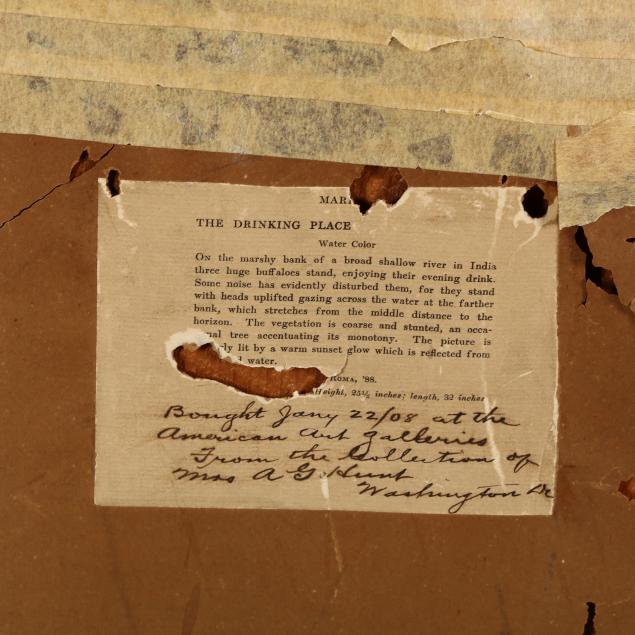 MARI
THE DRINKING PLACE
Water Color
ON the marshy bank of a broad shallow river in India
three huge buffaloes stand, enjoying their evening drink.
Some noise has evidently disturbed them, for they stand
with heads uplifted gazing across the water at the farther
bank, which stretches from the middle distance to the
horizon. The vegetation is coarse and stunted, an occa-
nal tree accentuating its monotony. The picture is
ly lit by a warm sunset glow which is reflected from
water.
ROMA, '88.
Height, 25½ inches; length, 32 inches
Bought Jany 22/08 at the
American Art Galleries
From the Collection of
Mrs A G Hunt
Washington DC